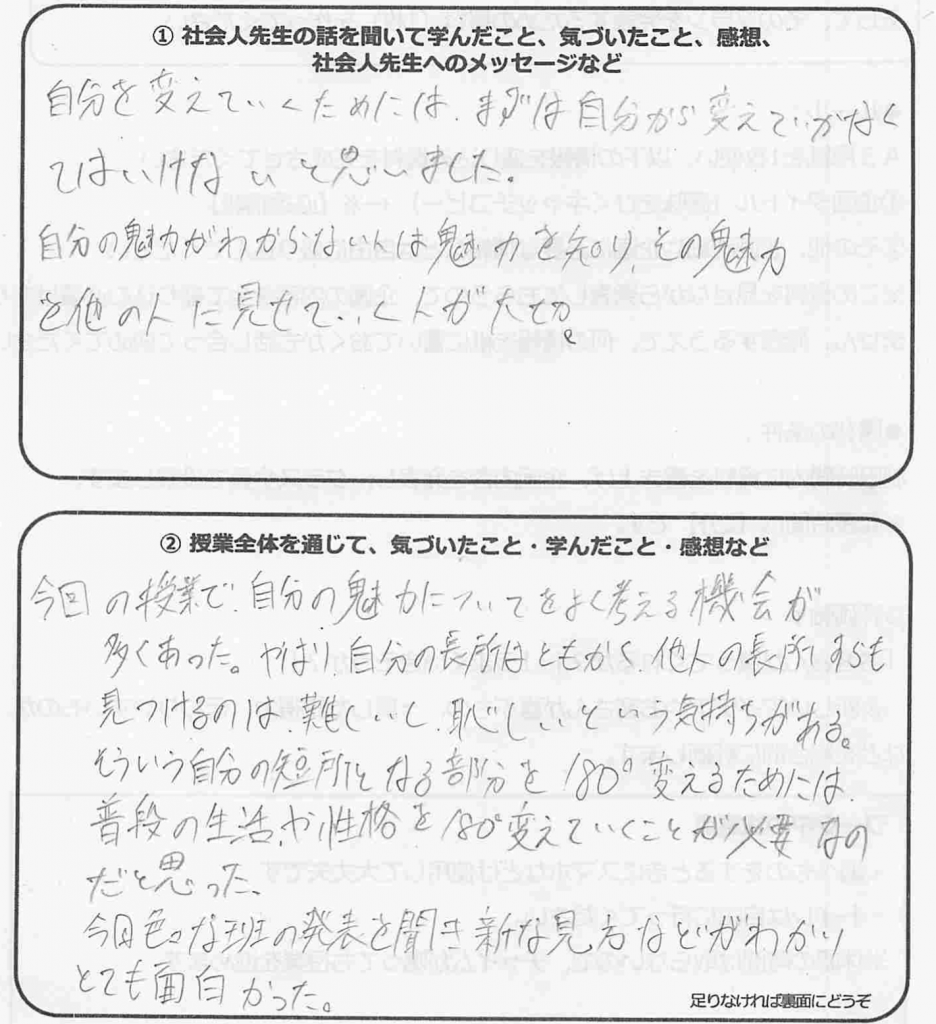 ① 社会人先生の話を聞いて学んだこと、気づいたこと、感想、
社会人先生へのメッセージなど
自分を変えていくためには、まずは自分から変えていかなく
てはいけないと思いました。
自分の魅力がわからない人は魅力を知り、その魅力
を他の人に見せていく人が大切
② 授業全体を通じて、気づいたこと・学んだこと・感想など
今回の授業で、自分の魅力についてをよく考える機会が
多くあった。やはり、自分の長所はともかく、他人の長所
見つけるのは、難しいし、恥ずかしいという気持ちがある。
そういう自分の短所となる部分を180°変えるためには、
普段の生活や性格を180°変えていくことが必要なの
だと思った。
今回色々な班の発表を聞き新な見方などがわかり
とても面白かった。
足りなければ裏面にどうぞ